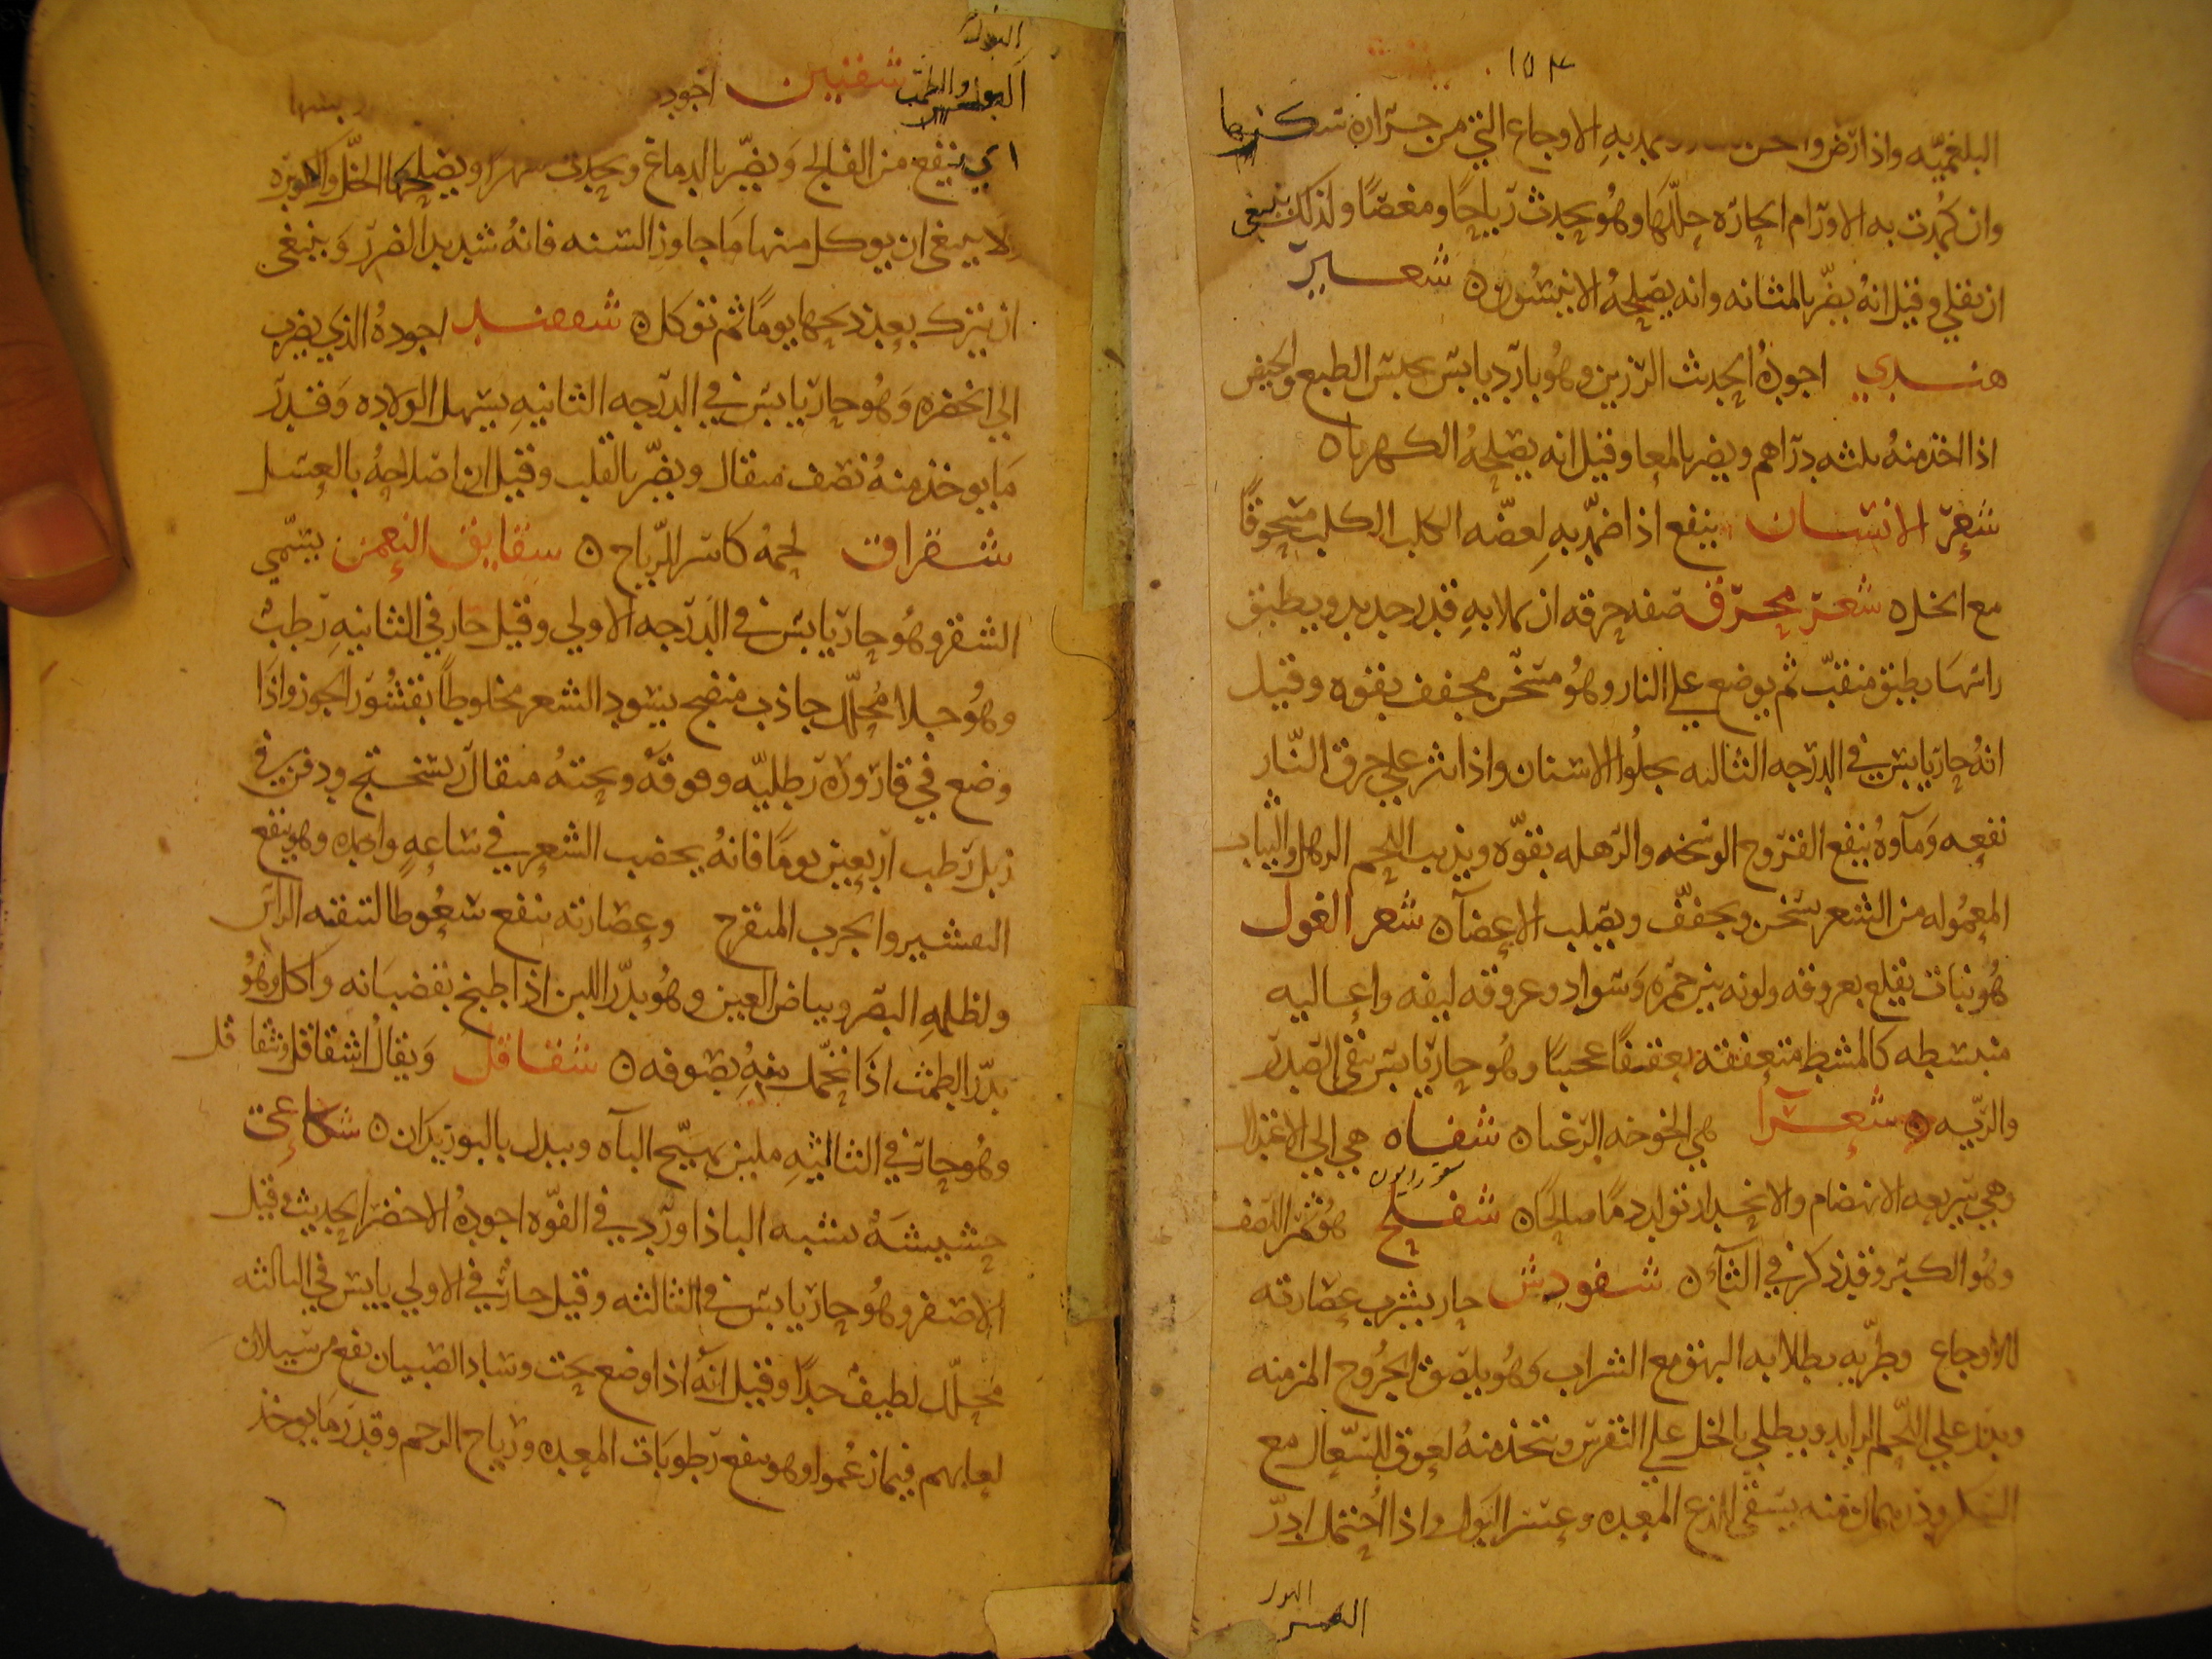 ١٥٣
البلغميه واذا رض به الاوجاع التي من حراره سكنها
وان كمدت به الاورام الحاره حللها وهو يحدث رياحا ومغصا ولذلك ينبغي
ان يقلي وقيل انه يضر بالمثانه وانه يصلحه الانيسون شعير
هندي اجوده الحديث الرزين وهو بارد يابس يحبس الطبع والحيض
اذا اخذ منه ثلثه دراهم ويضر بالمعا وقيل انه يصلحه الكهربا
شعر الانسان ينفع اذا ضمد به لعضه الكلب الكلب مسحوقا
مع الخل شعر محرق صفه حرقه ان يملا به قدر جديد ويطبق
راسها بطبق مثقب ثم يوضع علي النار وهو مسخن مجفف بقوه وقيل
انه حار يابس في الدرجه الثالثه يجلوا الاسنان واذا نثر علي حرق النار
نفعه وماوه ينفع القروح الوسخه والرهله بقوه ويذيب اللحم الرهل والثياب
المعموله من الشعر تسخن وتجفف وتصلب الاعضآ شعر الغول
هو نبات يقلع بعروقه ولونه بين حمره وسواد وعروقه ليفه واعاليه
منبسطه كالمشط متعقفه تعقفا عجيبا وهو حار يابس ينقي الصدر
والريه شعرا هي الخوخه الزغبا شفاه هي الي الاعتدال
وهي سريعه الانهضام والانحدار تولد دما صالحا شفلح هو ثمر اللصف
وهو الكبر وقد ذكر في الثآ شفودش حار يشرب عصارته
للاوجاع وطريه يطلا به البهق مع الشراب وهو يلصق الجروح المزمنه
ويذر علي اللحم الزايد ويطلي بالخل علي النقرس ويتخذ منه لعوق للسعال مع
العسل ودرهمان منه يسقي للذع المعده وعسر البول واذا احتمل ادر
البول
البول والطمث شفنين اجود
ينفع من الفالج ويضر بالدماغ ويحدث سهرا ويصلحها الخل والكزبره
لا ينبغي ان يوكل منها ما جاوز السنه فانه شديد الضرر وينبغي
ان يترك بعد ذبحها يوما ثم توكل اجوده الذي يضرب
الي الخضره وهو حار يابس في الدرجه الثانيه يسهل الولاده وقدر
ما يوخذ منه نصف مثقال ويضر بالقلب وقيل ان اصلاحه بالعسل
شقراق لحمه كاسر للرياح شقايق النعمن يسمي
الشقر وهو حار يابس في الدرجه الاولي وقيل حار في الثانيه رطب
وهو جلا محلل جاذب منضج يسود الشعر مخلوطا بقشور الجوز واذا
وضع في قاروره رطليه وفوقه وتحته مثقال رسختج ودفن في
زبل رطب اربعين يوما فانه يخضب الشعر في ساعه واحده وهو ينفع
التقشير والجرب المتقرح وعصارته تنفع سعوطا لتنقيه الراس
ولظلمه البصر وبياض العين وهو يدر اللبن اذا طبخ بقضبانه واكل وهو
يدر الطمث اذا تحمل منه بصوفه شقاقل ويقال اشقاقل وشقاقل
وهو حار في الثانيه ملين يهيج الباه ويبدل بالبوزيدان شكاعي
حشيشه تشبه الباذاورد في القوه اجوده الاخضر الحديث وقيل
الاصفر وهو حار يابس في الثالثه وقيل حار في الاولي يابس في الثالثه
محلل لطيف جدا وقيل انه اذا وضع تحت وساد الصبيان نفع من سيلان
لعابهم فيما زعموا وهو ينفع رطوبات المعده ورياح الرحم وقدر ما يوخذ